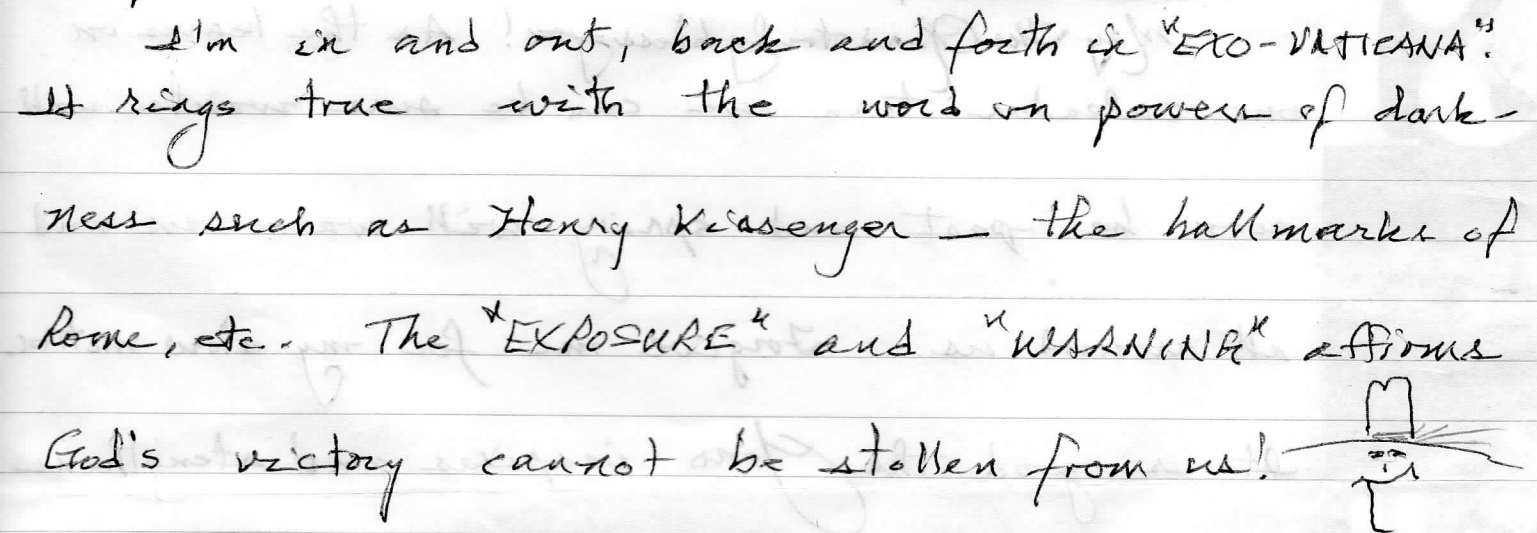 I'm in and out, back and forth in "EXO-VATICANA".
It rings true with the word on powers of dark-
ness such as Henry Kissenger - the hallmarks of
Rome, etc. The "EXPOSURE" and "WARNING" affirms
God's victory cannot be stollen from us!